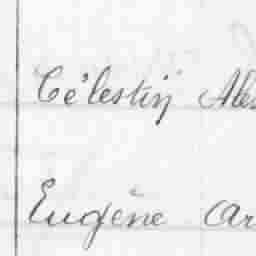 Célestin Ales
Eugène Ar